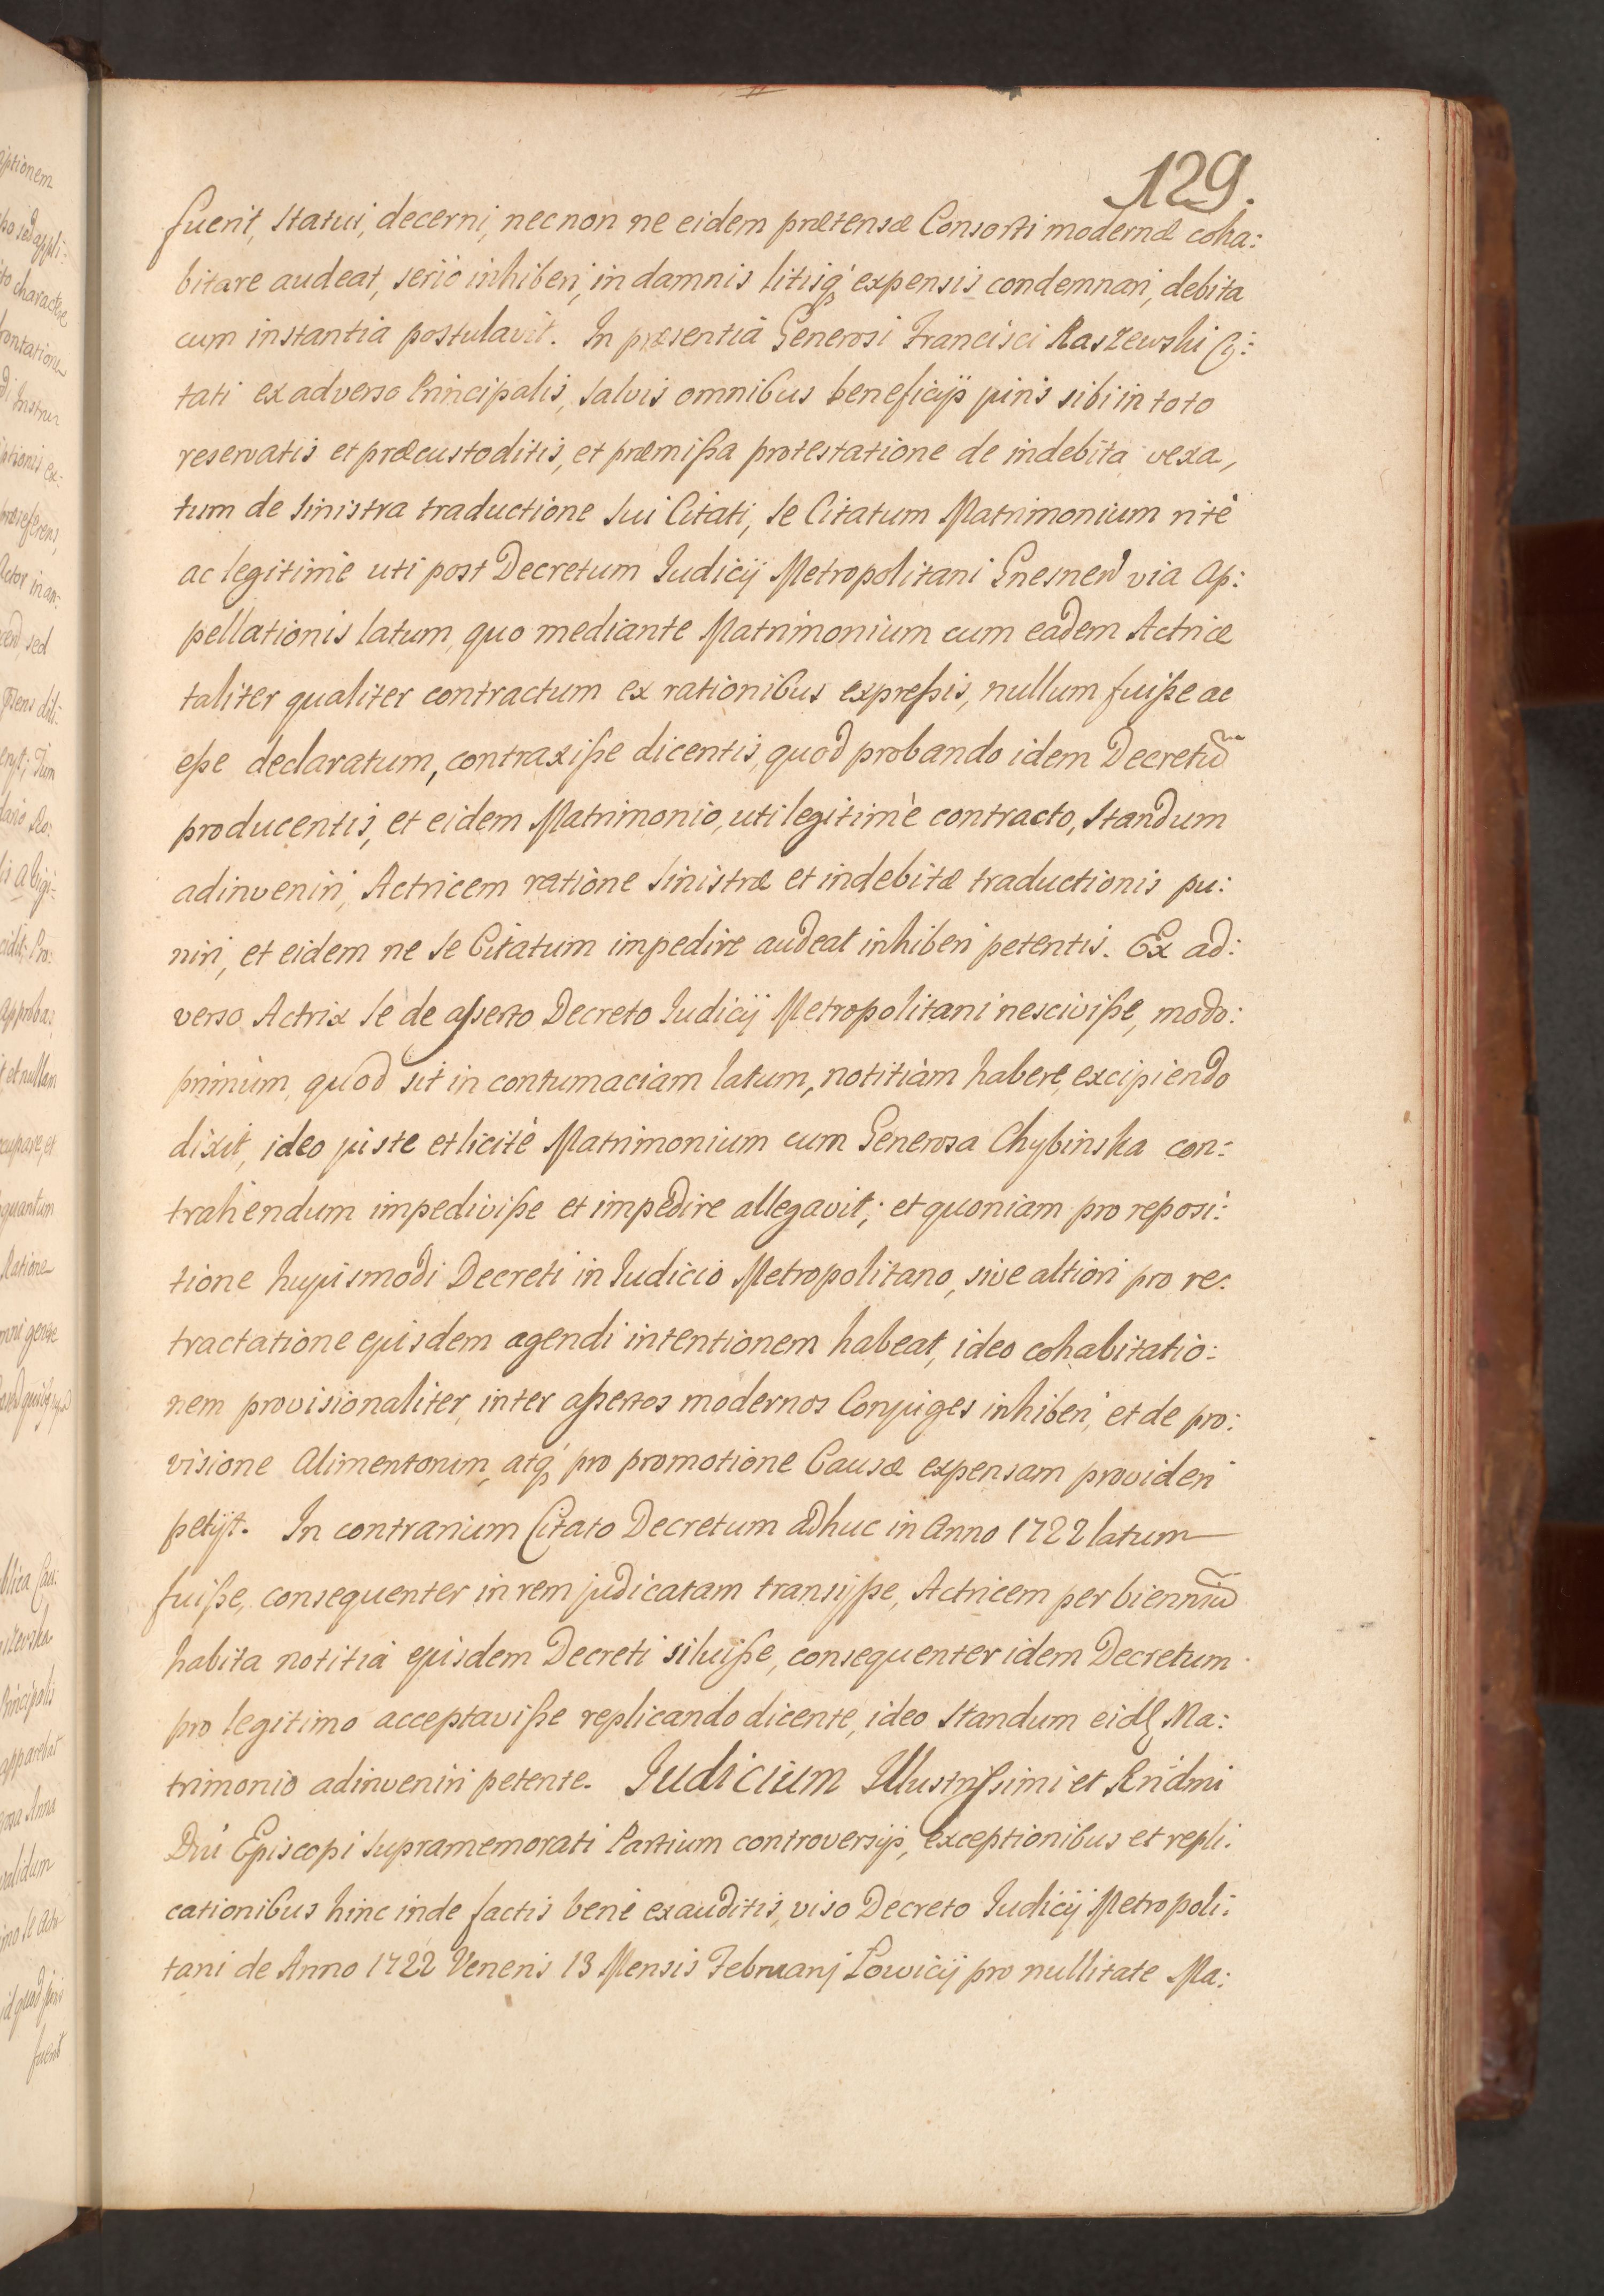 129.
fuerit, statui, decerni, nec non ne eidem prætensæ Consorti modernæ coha:
bitare audeat, seriò inhiberi, in damnis litisq́ expensis condemnari, debita
cum instantia postulavit. In præsentiâ Generosi Francisci Raszewski Cj:
tati ex adverso Principalis, salvis omnibus beneficijs juris sibi in toto
reservatis et præcustoditis, et præmißa protestatione de indebita vexa,
tum de sinistra traductione sui Citati, se Citatum Matrimonium ritè
ac legitimè uti post Decretum Judicij Metropolitani Gnesnen̄ via Ap:
pellationis latum, quo mediante Matrimonium cum eadem Actrice
taliter qualiter contractum ex rationibus expreßis, nullum fuiße ac
eße declaratum, contraxiße dicentis, quod probando idem Decretũ
producentis, et eidem Matrimonio, uti legitimè contracto, standum
adinveniri, Actricem ratione sinistræ et indebitæ traductionis pu:
niri, et eidem ne se Citatum impedire audeat inhiberi petentis. Ex ad:
verso Actrix se de aßerto Decreto Judicij Metropolitani nesciviße, modo:
primùm, quod sit in contumaciam latum, notitiam habere, excipiendo
dixit, ideo juste et licitè Matrimonium cum Generosa Chybinska con:
trahendum impediviße et impedire allegavit; et quoniam pro reposi:
tione hujusmodi Decreti in Judicio Metropolitano, sive altiori pro re:
tractatione ejusdem agendi intentionem habeat, ideo cohabitatio:
nem provisionaliter, inter aßertos modernos Conjuges inhiberi, et de pro:
visione Alimentorum, atq́ pro promotione Causæ expensam provideri
petijt. In contrarium Citato Decretum adhuc in Anno 1722 latum
fuiße, consequenter in rem judicatam transijße, Actricem per bienniũ
habita notitiâ ejusdem Decreti siluiße, consequenter idem Decretum
pro legitimo acceptaviße replicando dicente, ideo standum eid Ma:
trimonio adinveniri petente. Judicium Illustrißimi et Rndmi
Dni Episcopi supramemorati Partium controversijs, exceptionibus et repli:
cationibus hinc inde factis benè exauditis, viso Decreto Judicij Metropoli:
tani de Anno 1722 Veneris 13 Mensis Februarij Lowicij pro nullitate Ma: